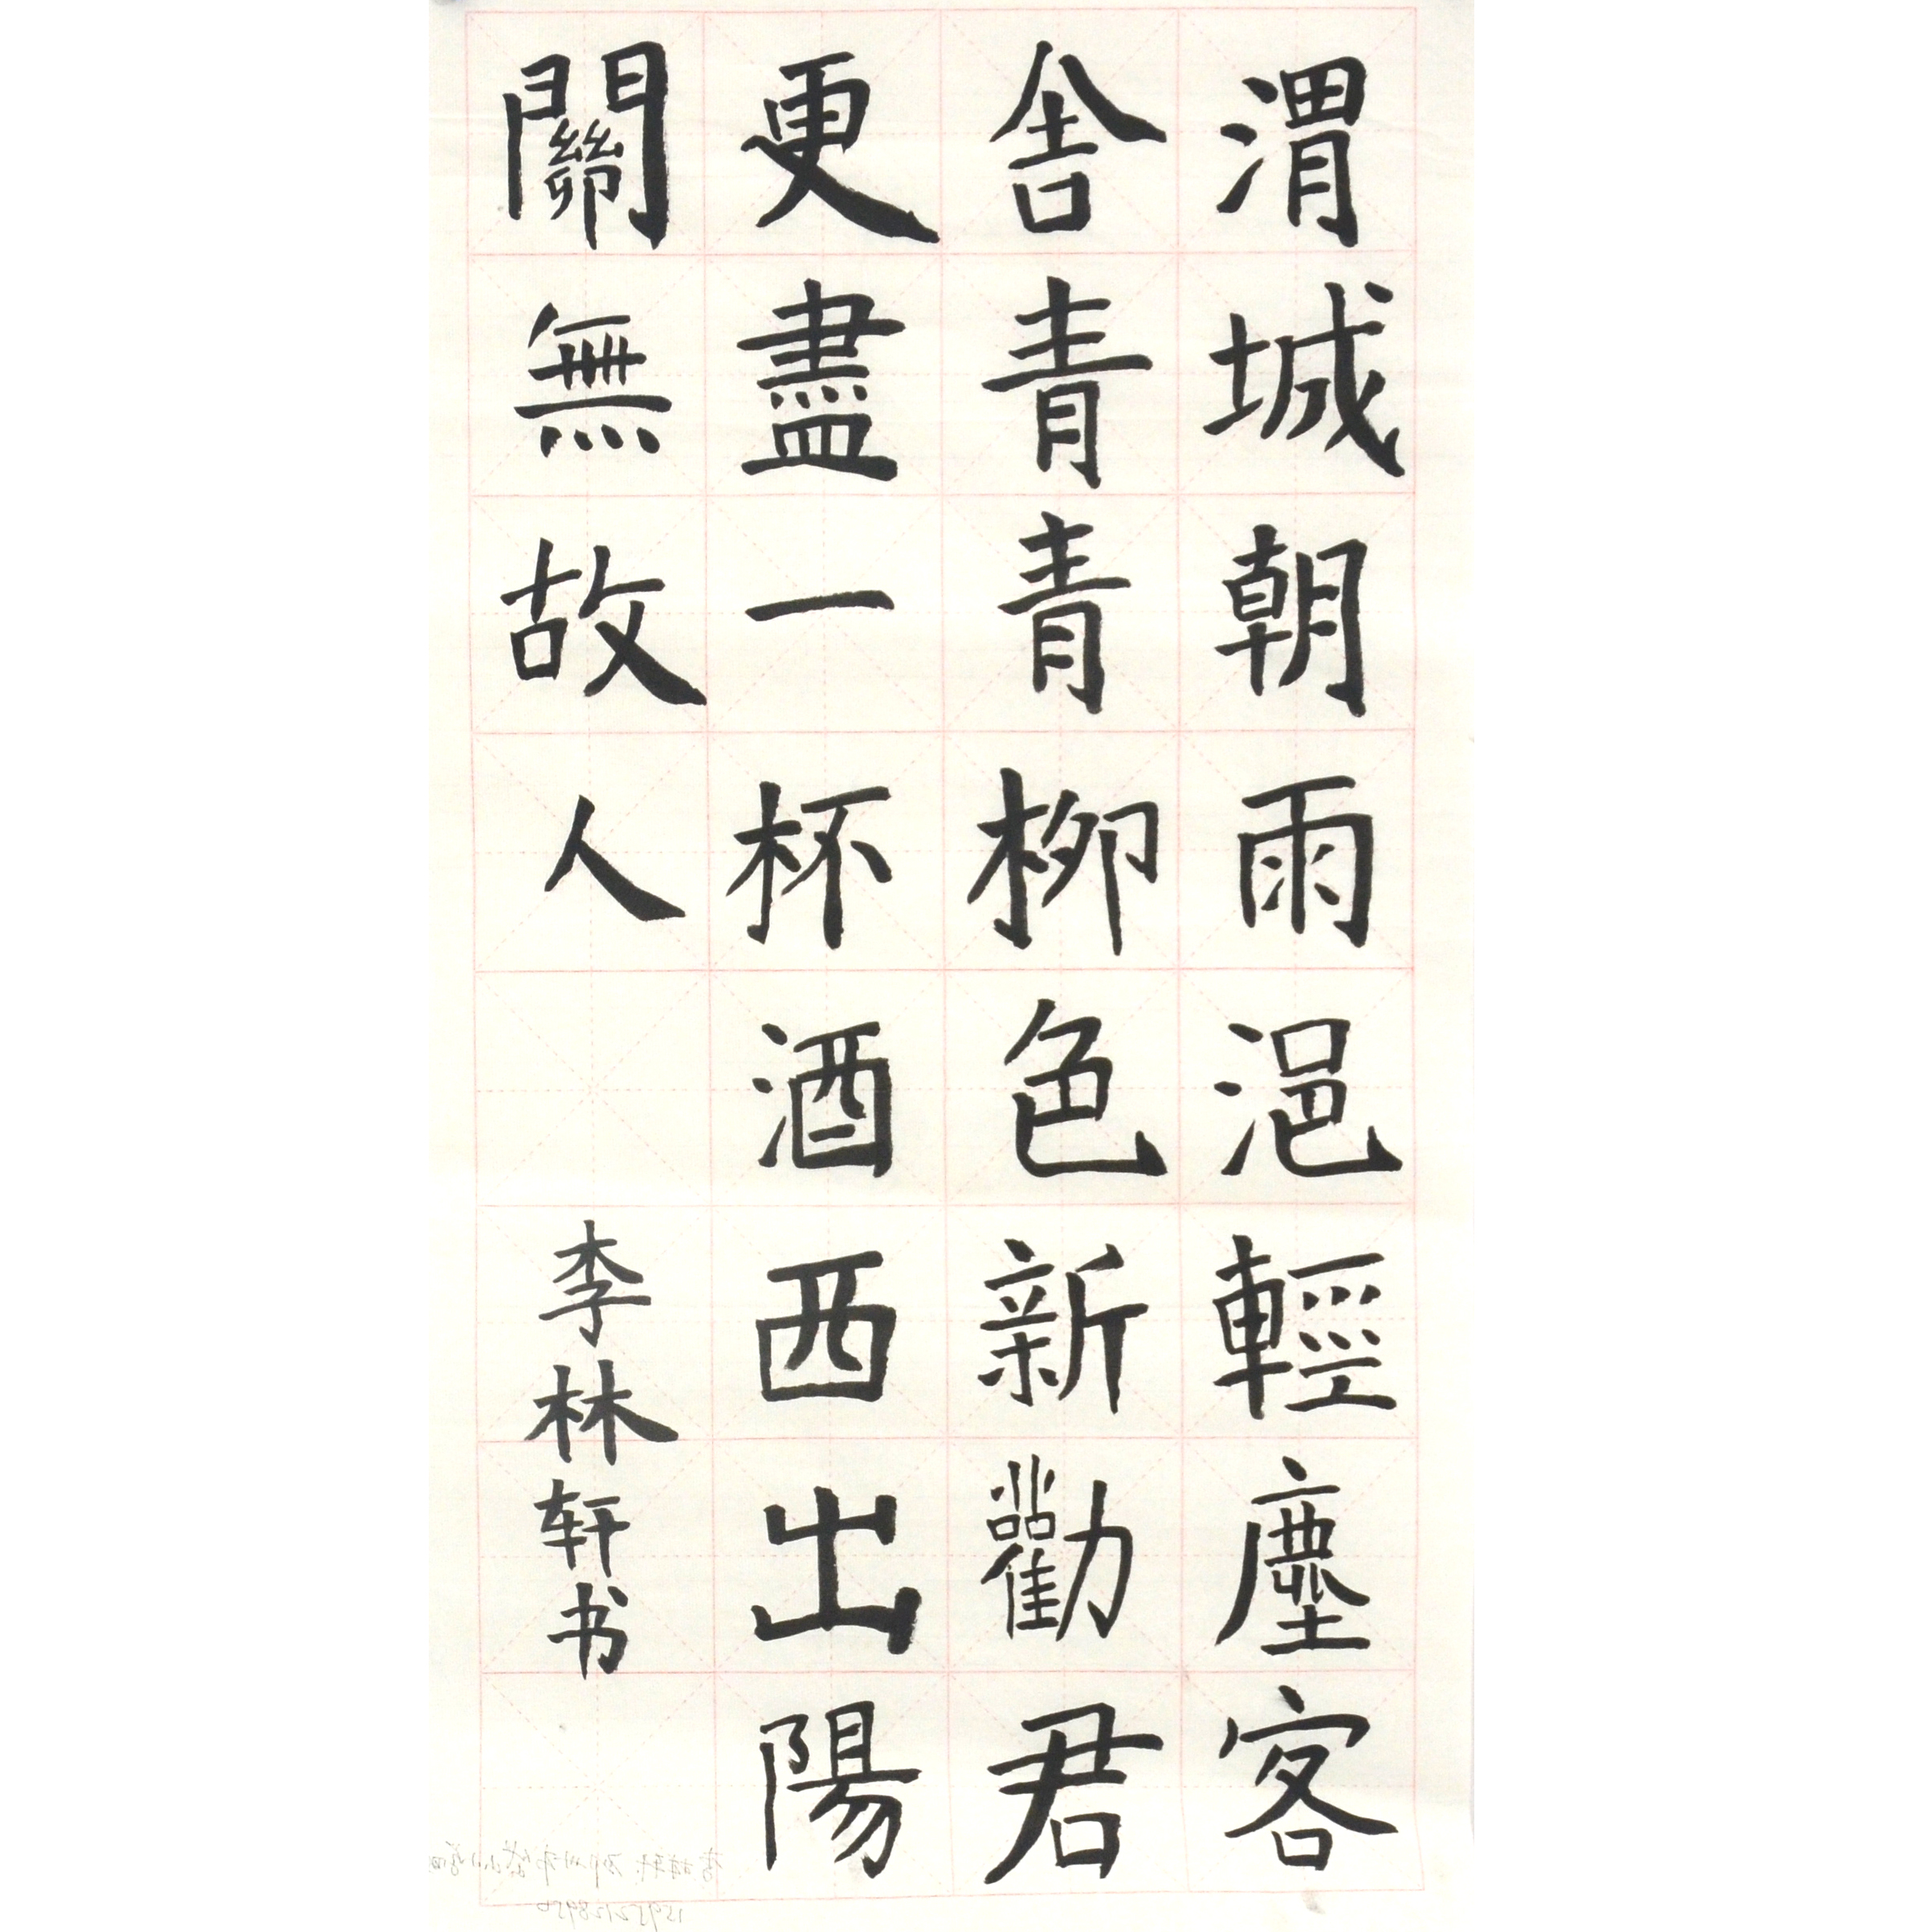 渭城朝雨浥輕塵客
舍青青柳色新勸君
更盡一杯酒西出陽
關無故人
李林轩书